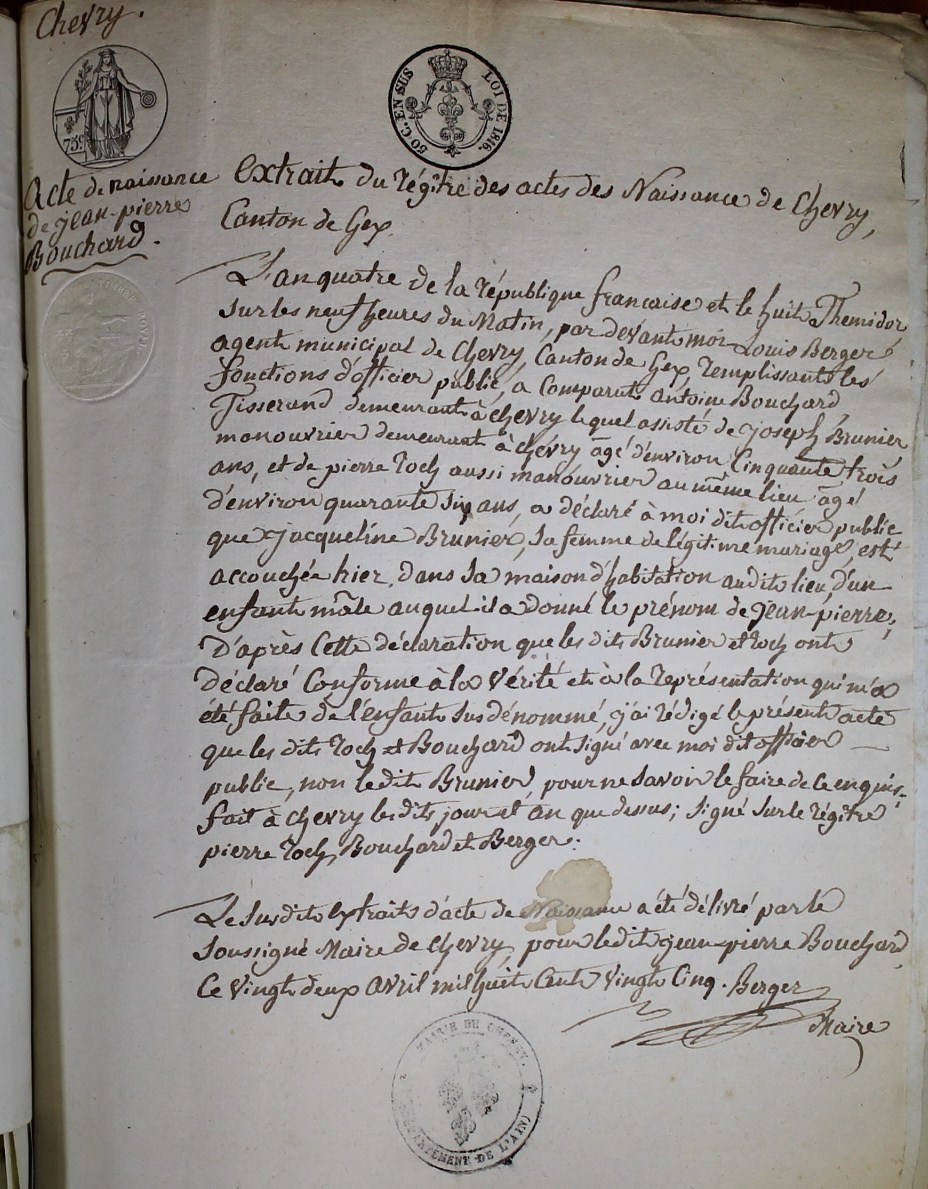 Chevry.
75c
50 C. EN SUS LOI DE 1816.
Acte de naissance
de jean-pierre
Bouchard.
extrait du régitre des actes des Naissance de Chevry,
Canton de Gex.
L'an quatre de la république française et le huit Themidor
sur les neuf heures du Matin, par devant moi Louis Berger
agent municipal de Chevry, Canton de Gex, remplissant les
fonctions d'officier public, a Comparut antoine Bouchard,
Tisserand demeurant à chevry lequel assisté de joseph Brunier
manouvrier demeurant à chevry âgé d'environ Cinquante trois
ans, et de pierre roch aussi manouvrier au même lieu âgé
d'environ quarante six ans, a déclaré à moi dit officier public
que jacqueline Brunier, sa femme de légitime mariage, est
accouchée hier, dans sa maison d'habitation audit lieu, d'un
enfant mâle auquel il a donné le prénom de jean-pierre,
D'après Cette déclaration que les dits Brunier et roch ont
déclaré Conforme à la vérité et à la représentation qui m'a
été faite de l'enfant sus dénommé, j'ai rédigé le présent acte
que les dits roch et Bouchard ont signé avec moi dit officier
public, non le dit Brunier, pour ne savoir le faire de ce enquis,
fait à chevry les dits jour et an que dessus; signé sur le régitre
pierre roch, Bouchard et Berger.
Le susdit extraits d'acte de Naissance a été délivré par le
soussigné Maire de chevry, pour le dit jean-pierre Bouchard,
Ce vingt deux avril mil huit Cent vingt Cinq. Berger
Maire
MAIRIE DE CHEVRY.
(DÉPARTEMENT DE L'AIN)